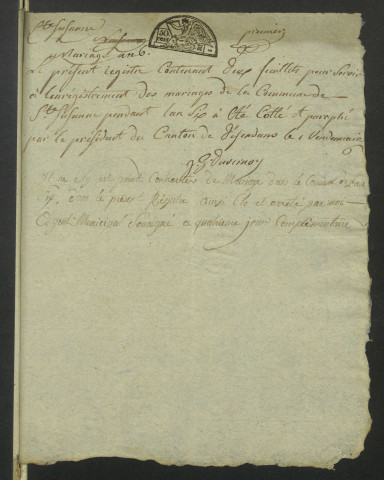 Ste Susanne premier
Mariage an 6.
Le présent registre Contenant deux feuillets pour Servir
à lenregistrement des mariages de la Commune de
Ste Susanne pendant lan Six à été Cotté et parafé
par le président du Canton de le 1 Vendemiaire
6
Il ne sest point de Mariage dans le Courant de lan
Six, dont le présent Régistre ainsi clo et arrété par moi
Agent Municipal Soussigné ce quatrieme jour Complémentaire